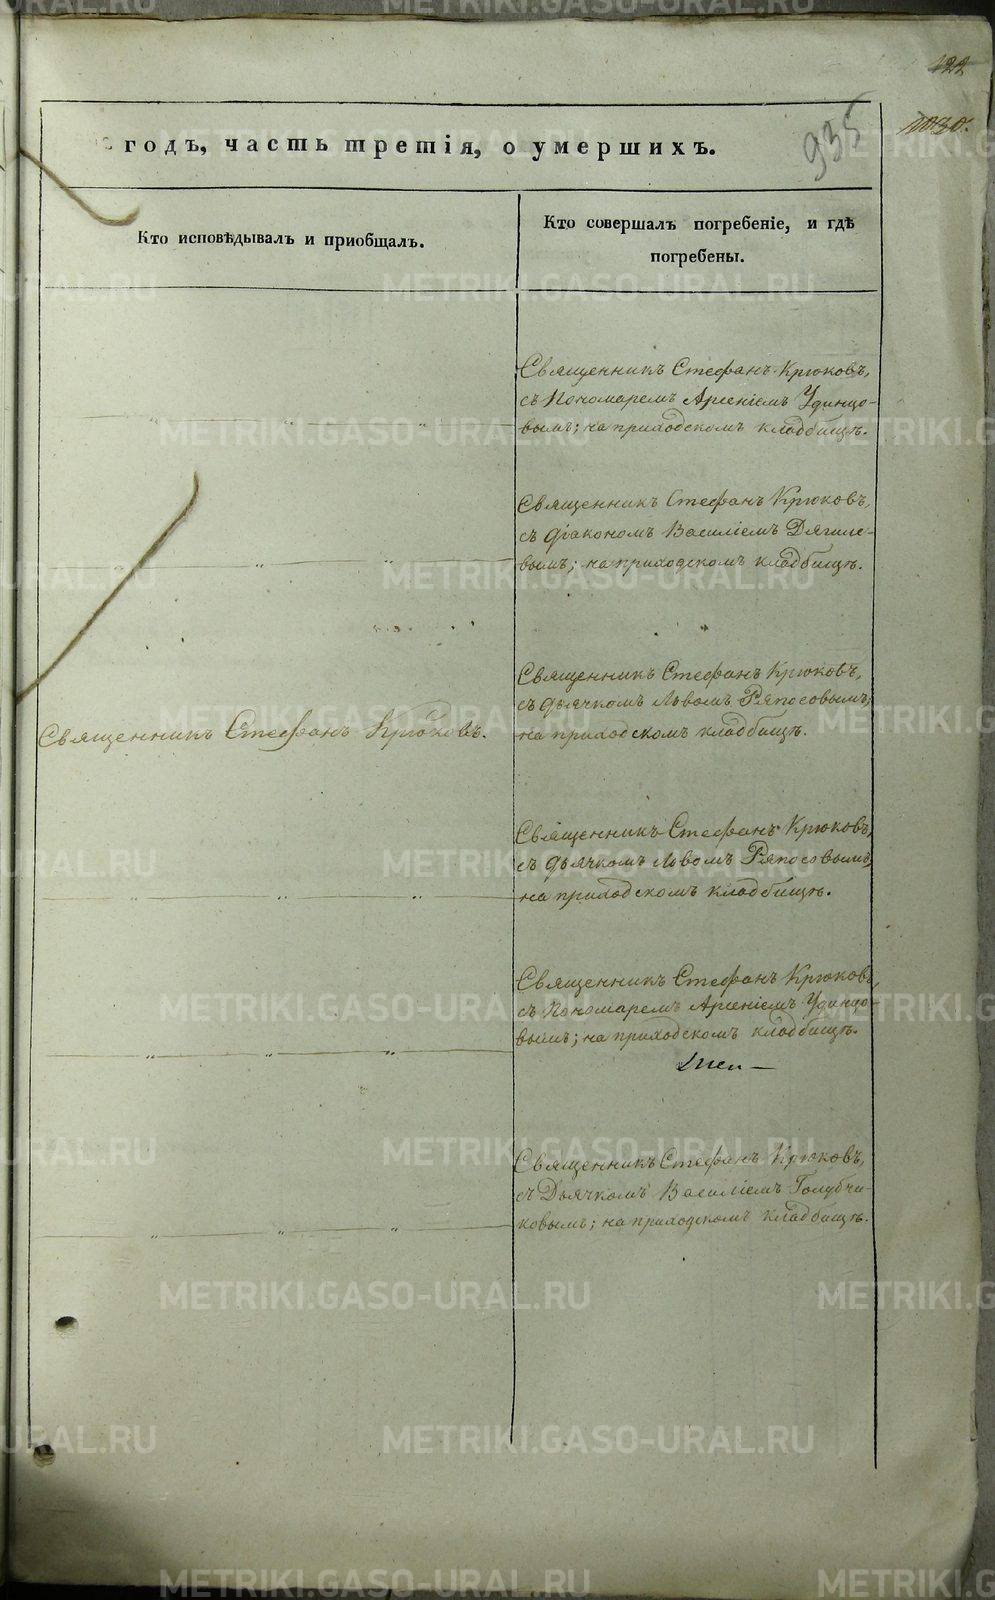 122
1030.
935
годъ, часть третія, о умершихъ.
Кто исповѣдывалъ и приобщалъ.
Кто совершалъ погребеніе, и гдѣ
погребены.
Священникъ Стефанъ Крюковъ,
съ Пономаремъ Арсеніемъ Удинцо-
вымъ; на приходскомъ кладбищѣ.
Священникъ Стефанъ Крюковъ,
съ діакономъ Василіемъ Дягиле-
вымъ; на приходскомъ кладбищѣ.
Священникъ Стефанъ Крюковъ.
Священникъ Стефанъ Крюковъ,
съ дьячкомъ Львомъ Ряпосовымъ;
на приходскомъ кладбищѣ.
Священникъ Стефанъ Крюковъ,
съ дьячкомъ Львомъ Ряпосовымъ;
на приходскомъ кладбищѣ.
Священникъ Стефанъ Крюковъ,
съ Пономаремъ Арсеніемъ Удинцо-
вымъ; на приходскомъ кладбищѣ.
Священникъ Стефанъ Крюковъ,
съ Дьячкомъ Василіемъ Голубчи-
ковымъ; на приходскомъ кладбищѣ.
METRIKI.GASO-URAL.RU